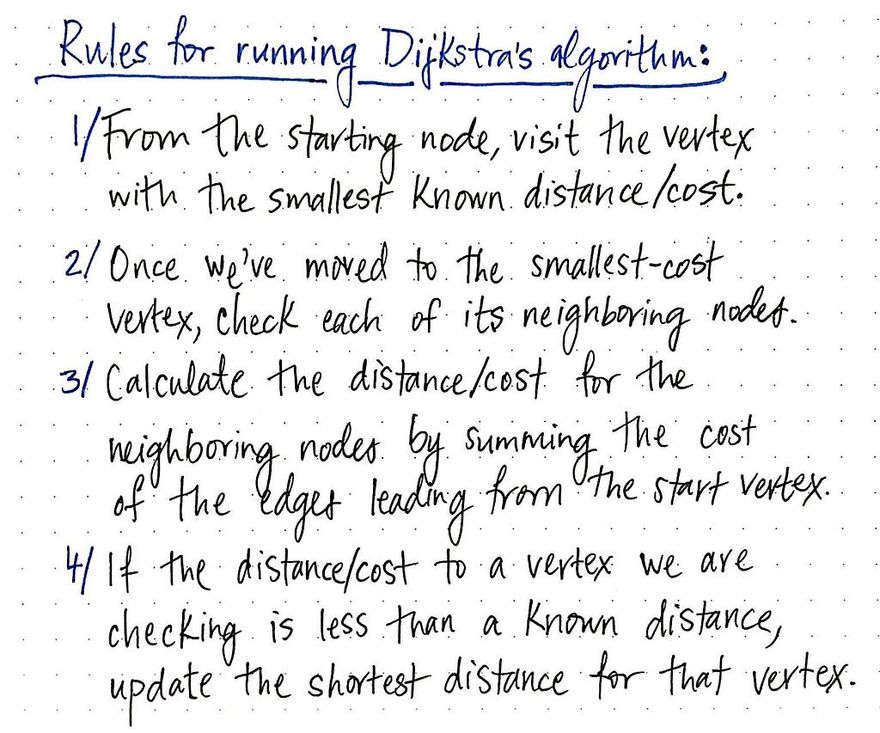 Rules for running Dijkstra's algorithm:
1/ From the starting node, visit the vertex
with the smallest known distance/cost.
2/ Once we've moved to the smallest-cost
vertex, check each of its neighboring nodes.
3/ Calculate the distance/cost for the
neighboring nodes by summing the cost
of the edges leading from the start vertex.
4/ If the distance/cost to a vertex we are
checking is less than a known distance,
update the shortest distance for that vertex.